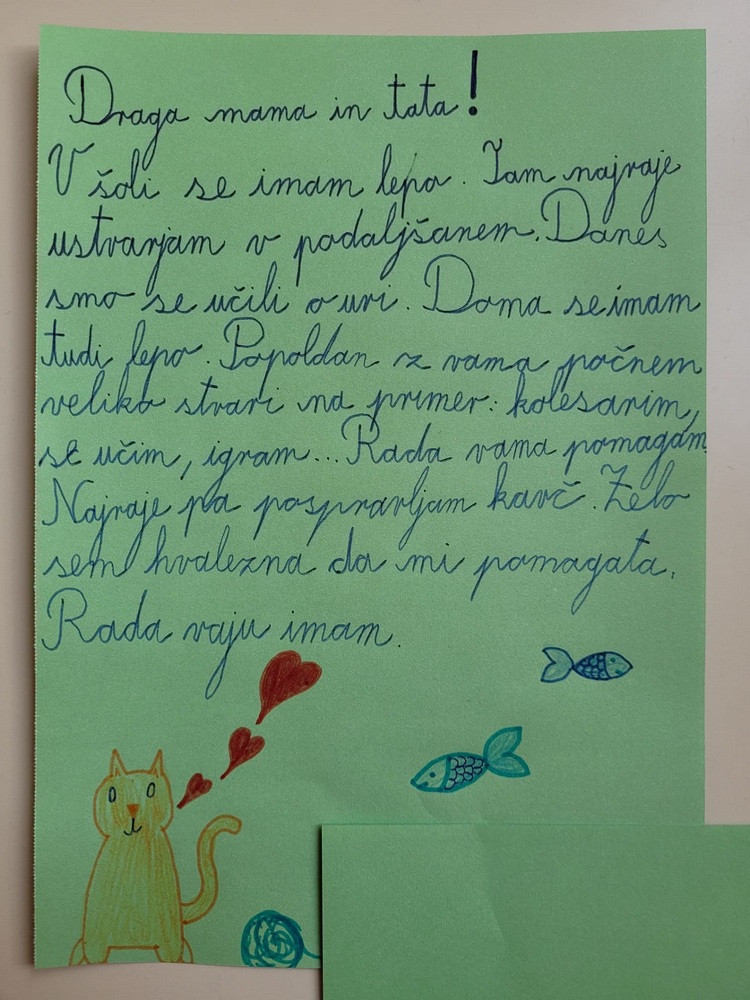 Draga mama in tata!
V šoli se imam lepo. Tam najraje
ustvarjam v podaljšanem. Danes
smo se učili o uri. Doma se imam
tudi lepo. Popoldan z vama počnem
veliko stvari na primer: kolesarim,
se učim, igram... Rada vama pomagam.
Najraje pa pospravljam kavč. Zelo
sem hvalezna da mi pomagata.
Rada vaju imam.